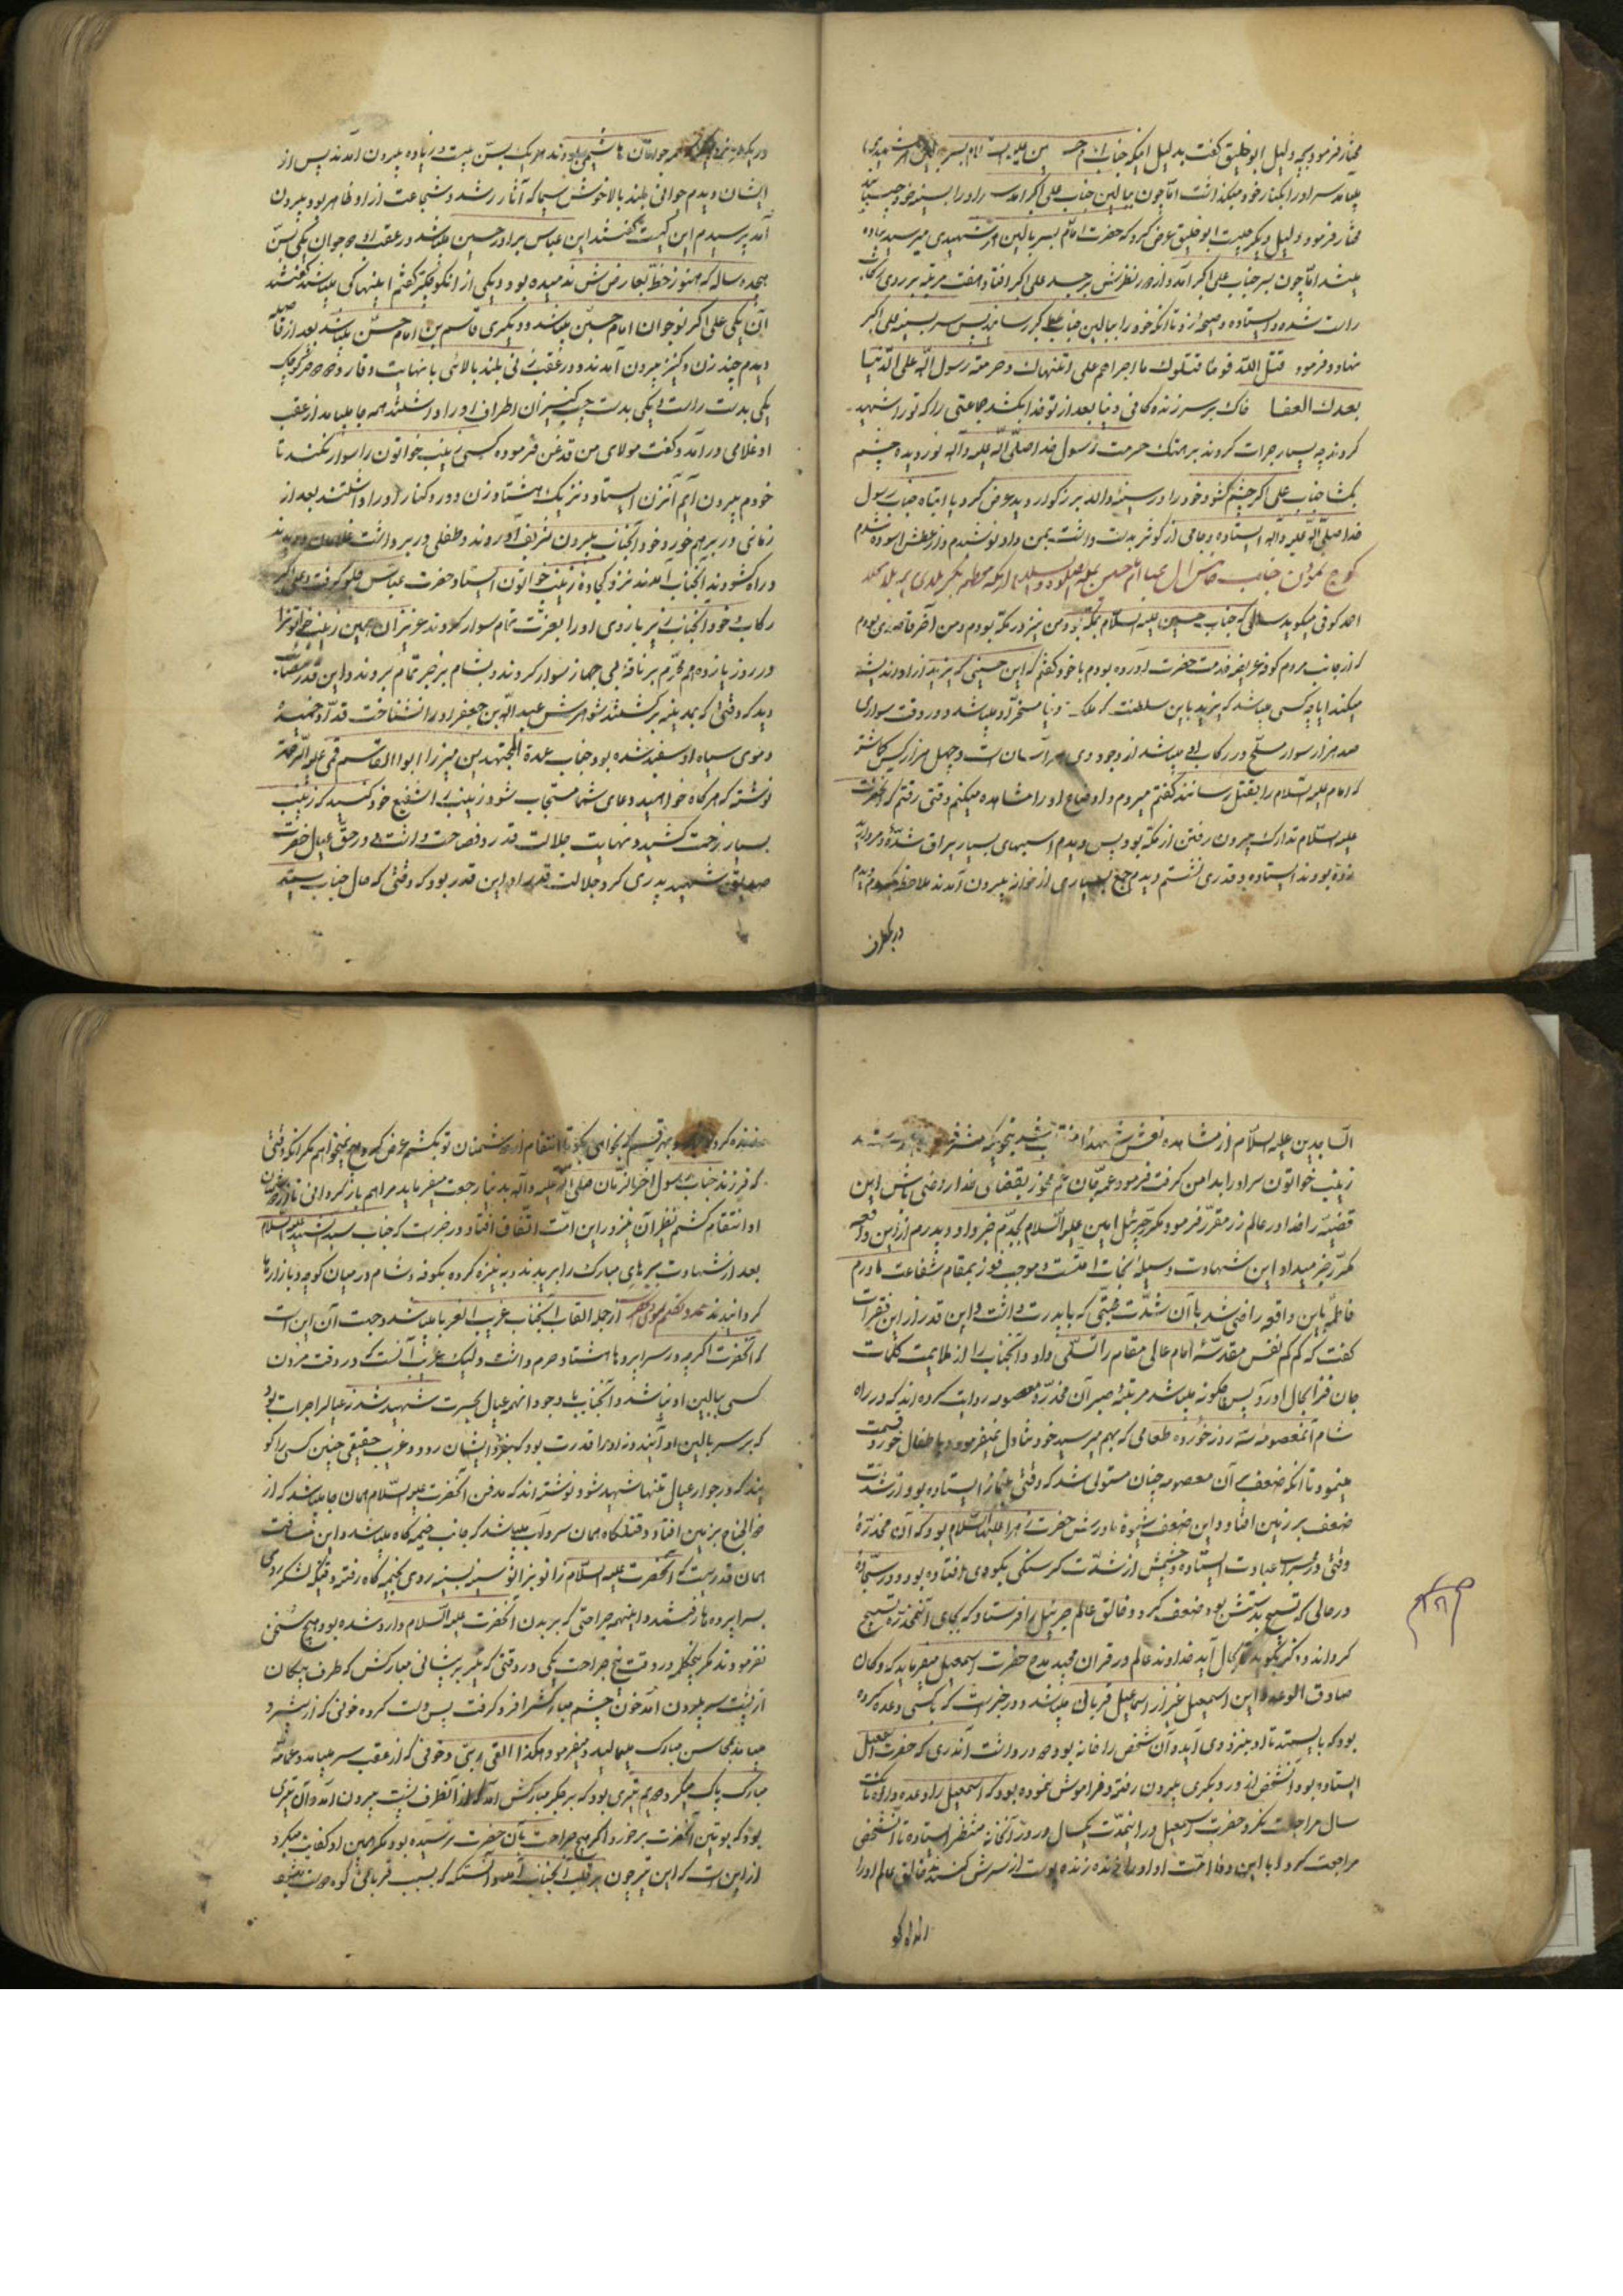 مختار فرمود بچه دلیل ابوخلیق گفت بدلیل اینکه جناب امام حسین علیه السلام بسر بالین هر شهیدی
میآمد سر او را بکنار خود میگذاشت اما چون ببالین جناب علی اکبر آمد سر او را بسینه خود چسبانید
مختار فرمود دلیل دیگر چیست ابوخلیق عرض کرد که حضرت امام بسر بالین هر شهیدی میرسید پیاده
میشد اما چون بسر جناب علی اکبر آمد و از دور نظرش بر جسد علی اکبر افتاد هفت مرتبه بر روی
راست شده و ایستاده و صیحه زد تا آنکه خود را ببالین جناب علی اکبر رسانید پس سر بسینه علی اکبر
نهاد و فرمود قتل الله قوما قتلوك ما اجراهم على انتهاك حرمة رسول الله على الدنيا
بعدك العفا خاک بر سر زندگانی دنیا بعد از تو خدا بکشد جماعتی را که تو را شهید
کردند چه بسیار جرات کردند بر هتک حرمت رسول خدا صلی الله علیه و آله نور دیده چشم
بگشا جناب علی اکبر چشم گشود خود را در سینه والد بزرگوار دید عرض کرد یا ابتاه جناب رسول
خدا صلی الله علیه و آله ایستاده و جامی از کوثر بدست داشت بمن داد نوشیدم و از عطش آسوده شدم
کوچ نمودن جناب خامس آل عبا امام حسین علیه الصلوة والسلام از مکه معظمه بکربلای
احمد کوفی میگوید سالی که جناب حسین علیه السلام بمکه بود من نیز در مکه بودم و من آخر قاصدی بودم
که از جانب مردم کوفه عریضه خدمت حضرت آورده بودم با خود گفتم که این حسینی که یزید از او اندیشه
میکند آیا چه کسی میباشد که یزید باین سلطنت که ملک دنیا مسخر او میباشد و در وقت سواری
صد هزار سوار مسلح در رکاب او میباشد از وجود وی هراسان است و چهل هزار کس گماشته
که امام علیه السلام را بقتل رسانند گفتم میروم و اوضاع او را مشاهده میکنم وقتی رفتم که آنحضرت
علیه السلام تدارک بیرون رفتن از مکه بود پس دیدم اسبهای بسیار یراق شده و مردان
بودند ایستاده و قدری نشستم دیدم جمع بسیاری از خانه بیرون آمدند ملاحظه کردم دیدم
در یکطرف
جوانان هاشمی بودند هر یک بسن بیست و زیاده بیرون آمدند پس از
ایشان دیدم جوانی بلند بالا خوش سیما که آثار رشد و شجاعت از او ظاهر بود بیرون
آمد پرسیدم این کیست گفتند این عباس برادر حسین میباشد در عقب او دو جوان یکی بسن
هیجده ساله که هنوز خط بعارضش ندمیده بود و یکی از او کوچکتر گفتم اینها کی میباشند گفتند
آن یکی علی اکبر نوجوان امام حسین میباشد و دیگری قاسم بن امام حسن میباشد بعد از
دیدم چند زن و کنیز بیرون آمدند و در عقب زنی بلند بالائی با نهایت وقار و دو دختر کوچک
یکی بدست راست و یکی بدست چپ کنیزان اطراف او را داشتند همه جا میآمد از عقب
او غلامی در آمد و گفت مولای من قدغن فرموده کسی زینب خواتون را سوار نکند تا
خودم بیرون آیم آنزن ایستاد و نزدیک هشتاد زن دور و کنار او را داشتند بعد از
زمانی در بر هم خورد خود آنجناب بیرون تشریف آوردند و طفلی در بر داشت غلامان دویدند
و راه گشودند آنجناب آمدند نزد کجاوه زینب خواتون ایستاد حضرت عباس جلو گرفت و علی اکبر
رکاب و خود آنجناب زیر بازوی او را بعزت تمام سوار کردند عزیزان همین زینب خواتون را
در روز یازدهم محرم بر ناقه بی جهاز سوار کردند و بشام بزجر تمام بردند و این قدر
دید که وقتی که بمدینه برگشتند شوهرش عبد الله بن جعفر او را نشناخت قد او خمیده
و موی سیاه او سفید شده بود جناب عمدة المجتهدین میرزا ابوالقاسم قمی علیه الرحمه
نوشته که هر گاه خواهید دعای شما مستجاب شود زینب را شفیع خود کنید که زینب
بسیار زحمت کشید و نهایت جلالت قدر و فصاحت داشت و در حق عیال حضرت
شهید پدری کرد جلالت قدر او این قدر بود که وقتی که حال جناب سید
الساجدین علیه السلام از مشاهده نعش شهدا
زینب خواتون سر او را بدامن گرفت فرمود عمه جان غم مخور بقضای خدا راضی باش این
قضیه را خدا در عالم زر مقرر فرموده مگر جبرئیل امین علیه السلام بجدم خبر داد و پدرم از این واقعه
مکرر خبر میداد این شهادت وسیله نجات امتست و موجب فوز بمقام شفاعت مادرم
فاطمه باین واقعه راضی شد با آن شدت محبتی که با پدرت داشت و این قدر از این فقرات
گفت که کم کم نفس مقدسه امام عالی مقام را تسلی داد و آنجناب را از ملایمت کلمات
جان فزا بحال آورد پس چگونه میباشد مرتبه صبر آن مخدره معصومه روایت کرده اند که در راه
شام آنمعصومه سه روز نخورده طعامی که بهم میرسید خود تناول نمیفرمود و باطفال خورد قسمت
مینمود تا آنکه ضعف بر آن معصومه چنان مستولی شد که وقتی بنماز ایستاده بود از شدت
ضعف بر زمین افتاد و این ضعف شیوه مادرش حضرت زهرا علیها السلام بود که آن مخدره
وقتی در محراب عبادت ایستاده چشمش از شدت گرسنگی بگودی افتاده بود و در سجاده
در حالی که تسبیح بدستش بود ضعف کرد و خالق عالم جبرئیل را فرستاد که بجای آنمخدره تسبیح
گرداند و ذکر بگوید تا بحال آید خداوند عالم در قران مجید مدح حضرت اسمعیل میفرماید که و کان
صادق الوعد و این اسمعیل غیر از اسماعیل قربانی میباشد و در خبر است که با کسی وعده کرده
بود که بایستد تا او بنزد وی آید و آن شخص را خانه بود دو در داشت آندری که حضرت اسمعیل
ایستاده بود آنشخص از در دیگری بیرون رفته و فراموش نموده بود که اسمعیل را وعده داده تا یک
سال مراجعت نکرد حضرت اسمعیل در اینمدت یکسال در در آنخانه منتظر ایستاده تا آنشخص
مراجعت کرد با این وفا امت او او را زنده زنده پوست از سرش کندند خالق عالم او را
زنده کرد و بهر قسم که بخواهی بگو تا انتقام از دشمنان تو بکشم عرض کرد هیچ نمیخواهم مگر آنکه وقتی
که فرزند جناب رسول آخر الزمان صلی الله علیه و آله بدنیا رجعت میفرماید مرا هم باز گردانی تا از دشمنان
او انتقام کشم نظیر آن نیز در این امت اتفاق افتاد در خبر است که جناب سید الشهدا علیه السلام
بعد از شهادت سرهای مبارک را بریدند و به نیزه کرده بکوفه و شام در میان کوچه و بازارها
گردانیدند از جمله القاب آنجناب غریب الغربا میباشد و جهت آن این است
که آنحضرت اگرچه در سراپرده ها هشتاد حرم داشت ولیک غریب آنست که در وقت مردن
کسی ببالین او نباشد و آنجناب با وجود انهمه عیال بحسرت شهید شد نه عیال را جرات بود
که بر سر بالین او آیند و نه او را قدرت بود که بنزد ایشان رود و غریب حقیقی چنین کسی را گو
یند که در جوار عیال تنها شهید شود و نوشته اند که مدفن آنحضرت علیه السلام همان جا میباشد که از
ذوالجناح بزمین افتاد و قتلگاه همان سرداب میباشد که جانب خیمه گاه میباشد و این مسافت
همان قدریست که آنحضرت علیه السلام زانو بزانو سینه بسینه روی بخیمه گاه رفته و قتیکه لشکر روی
بسراپرده ها رفتند و اینهمه جراحتی که بر بدن آنحضرت علیه السلام وارد شده بود هیچ سخنی
نفرمودند مگر یکلمه در وقت پنج جراحت یکی در وقتی که تیر بر پیشانی مبارکش که طرف پیکان
از پشت سر بیرون آمد خون چشم مبارکش را فرو گرفت پس دست کرده خونی که از
میآمد بمحاسن مبارک میمالید و میفرمود هکذا القی ربی و خونی که از عقب سر میآمد و عمامه
مبارک پاک میکرد دویم تیری بود که بر جگر مبارکش آمد که از آنطرف پشت بیرون آمد و آن تیری
بود که بوتین آنحضرت برخورد اگر هیچ جراحت بآن حضرت نرسیده بود مگر همین او کفایت میکرد
از این است که این تیر چون بر قلب آنجناب آمد دانستکه که بسبب